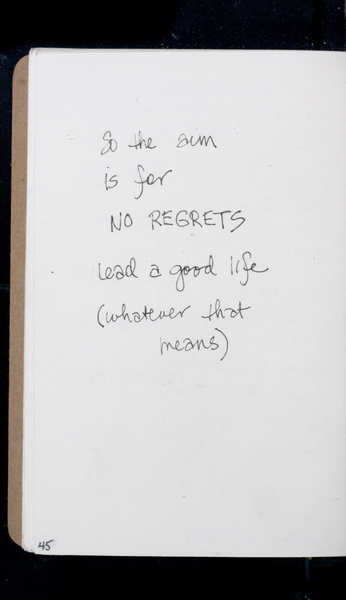 So the aim
is for
NO REGRETS
Lead a good life
(whatever that
means)
45